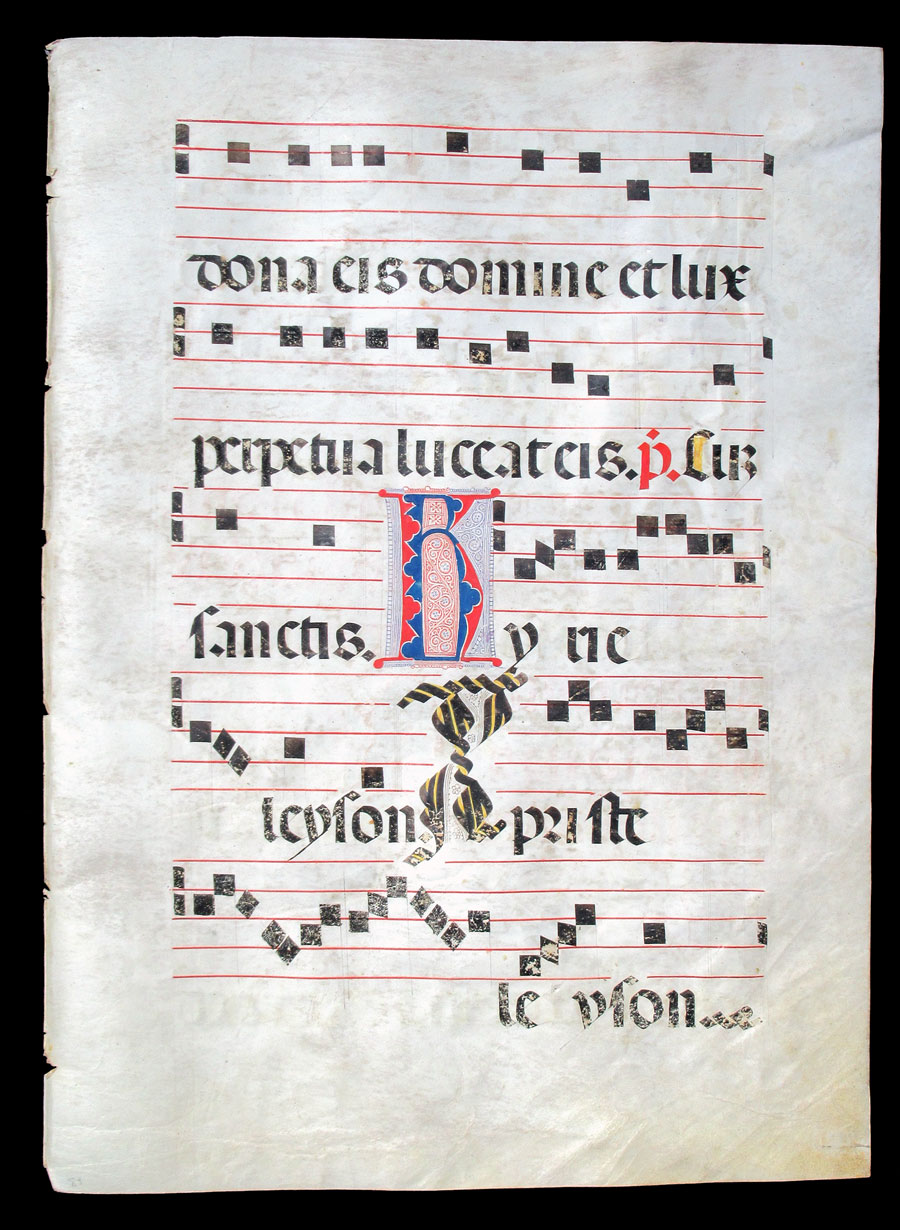 dona eis domine et lux
perpetua luceat eis. p̄. Cuz
sanctis. Ky rie
leyson. Xpriste
le yson...